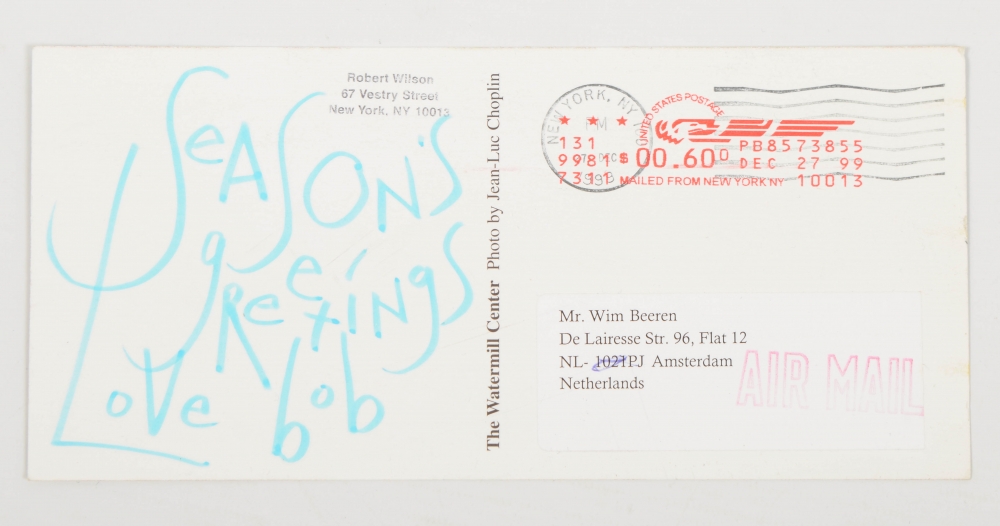 SeASON'S
gReetINgS
Love bob
Robert Wilson
67 Vestry Street
New York, NY 10013
The Watermill Center Photo by Jean-Luc Choplin
NEW YORK, NY
PM
DEC
UNITED STATES POSTAGE
131
9981 $00.60⁰ PB8573855
DEC 27 99
7311 MAILED FROM NEW YORK NY 10013
Mr. Wim Beeren
De Lairesse Str. 96, Flat 12
NL- 1021PJ Amsterdam
Netherlands
AIR MAIL